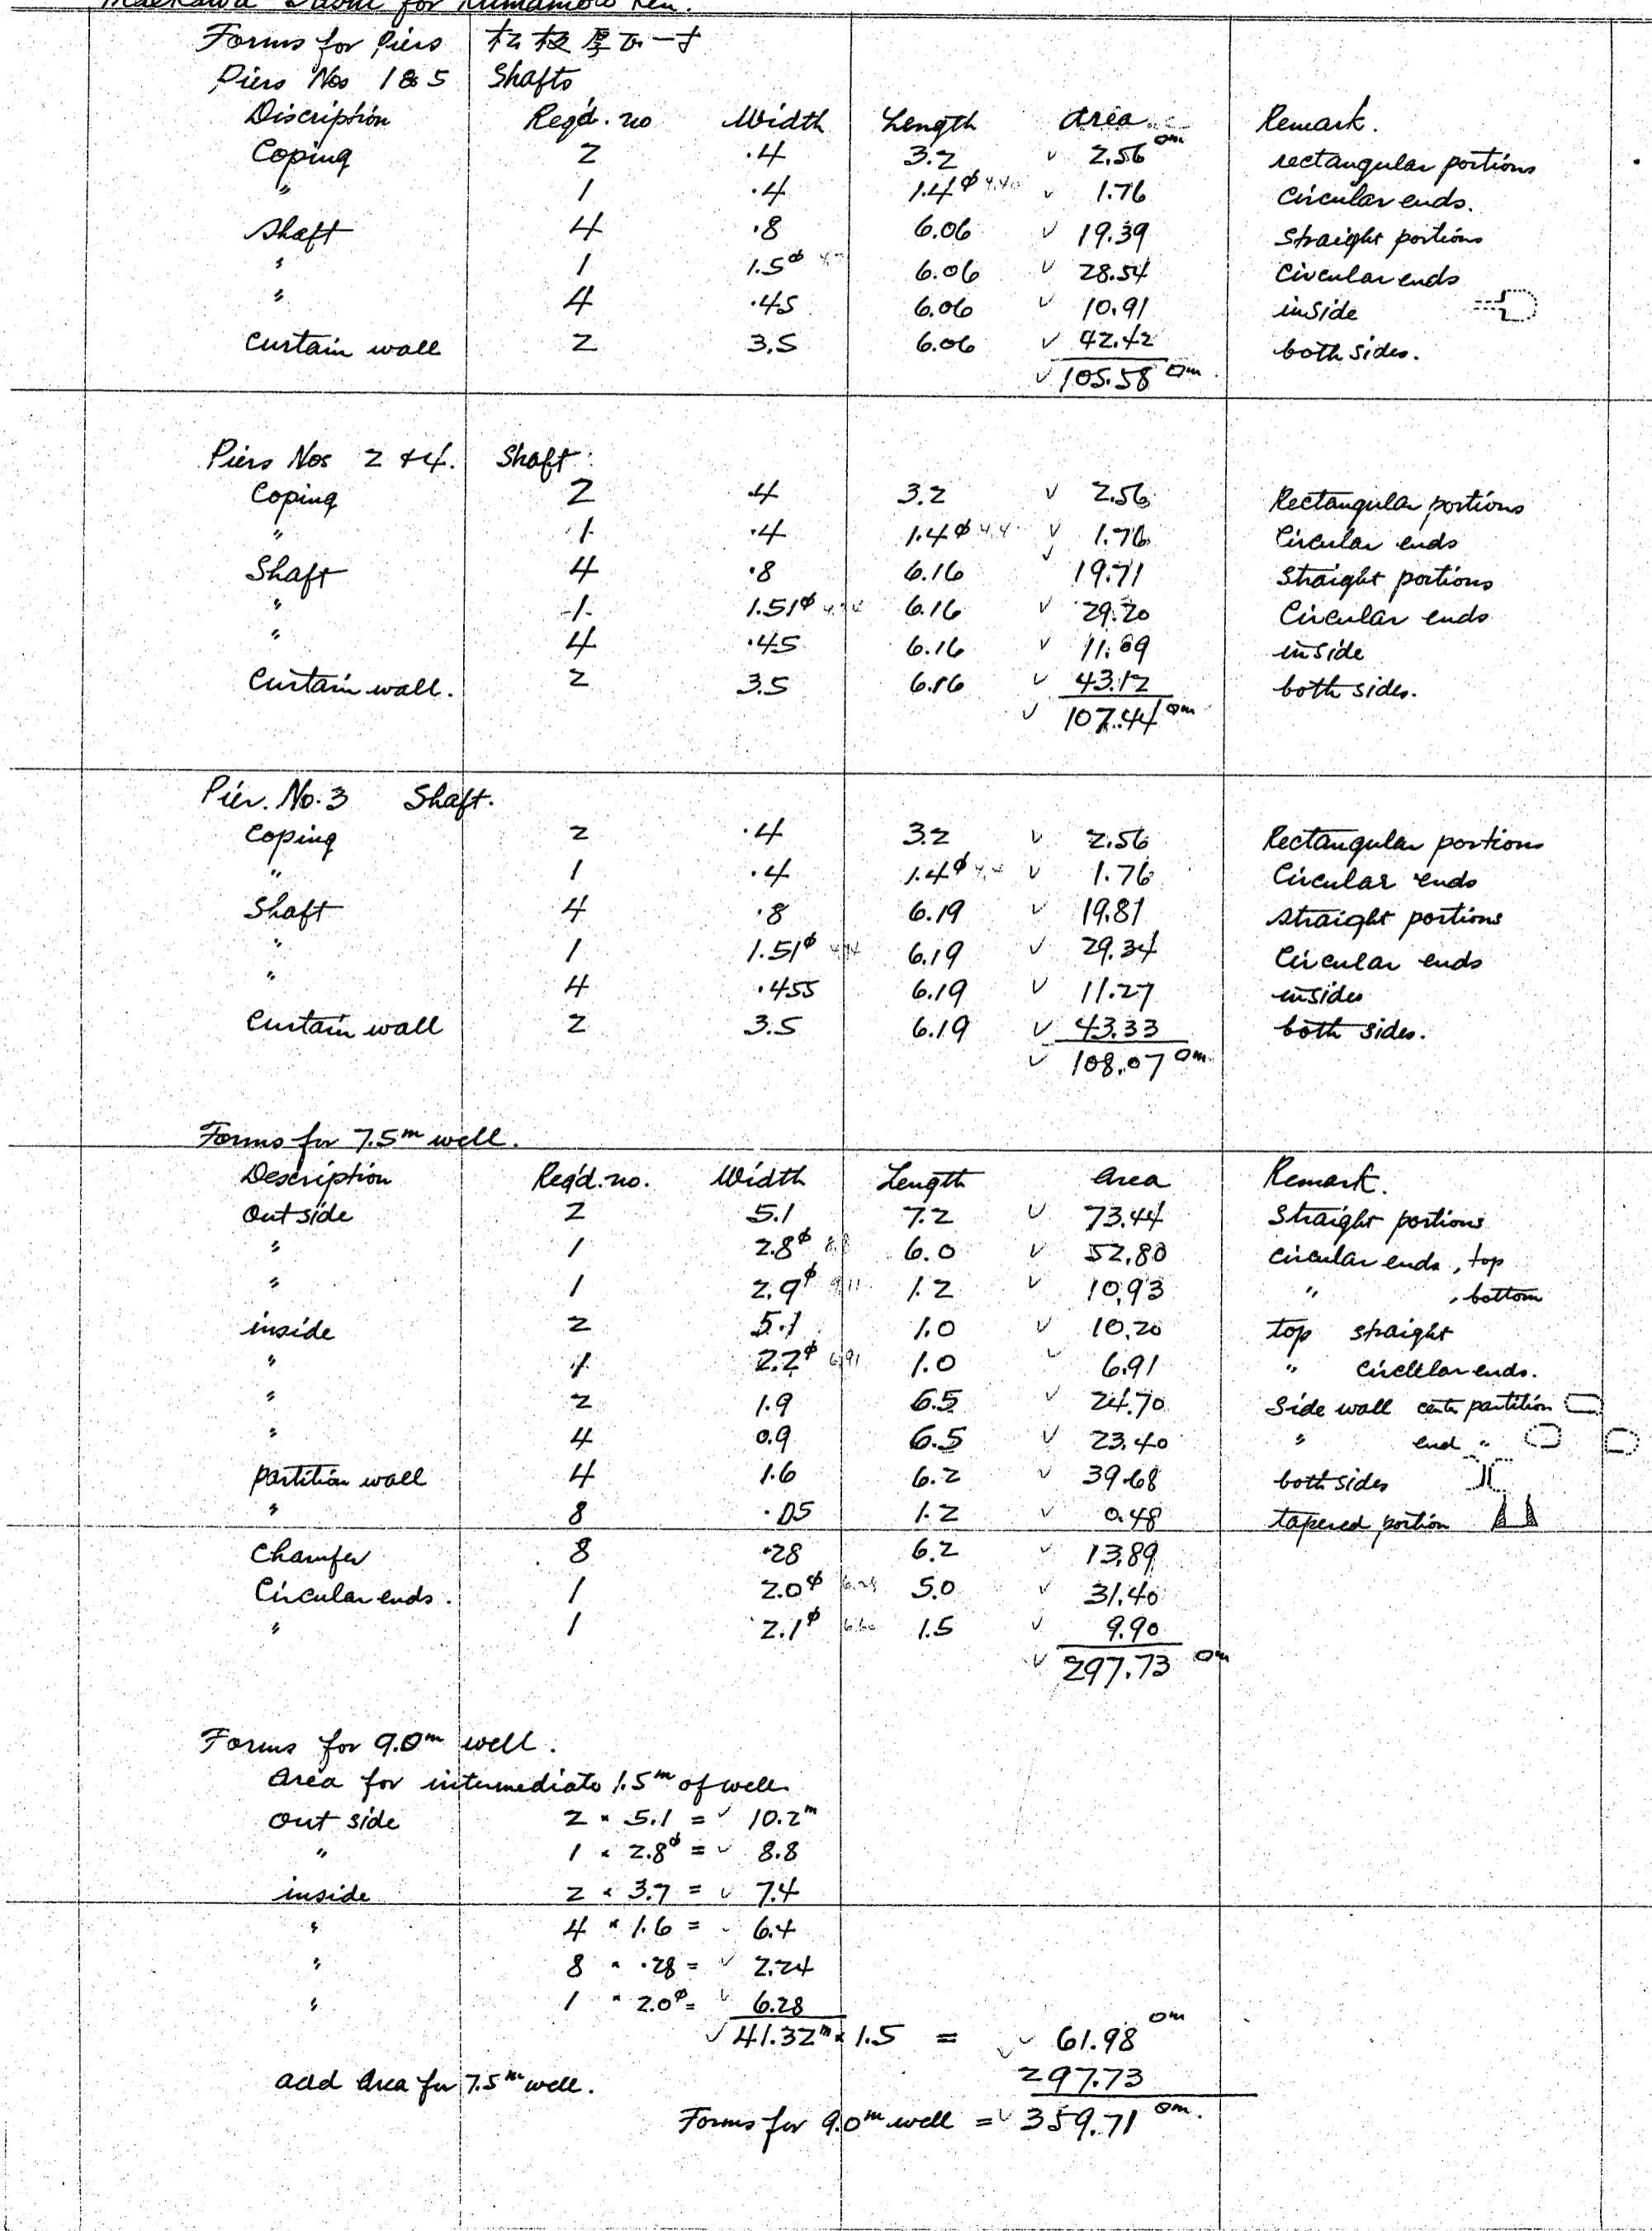 for Kumamoto Ken.
Forms for Piers 松板厚サ一寸
Piers Nos 1 & 5 Shafts
Discription Reqd. no Width Length Area Remark.
Coping 2 .4 3.2 ✓ 2.56 □m rectangular portions
" 1 .4 1.4φ 4.40 ✓ 1.76 Circular ends.
Shaft 4 .8 6.06 ✓ 19.39 Straight portions
" 1 1.5φ 6.06 ✓ 28.54 Circular ends
" 4 .45 6.06 ✓ 10.91 inside
Curtain wall 2 3.5 6.06 ✓ 42.42 both sides.
✓ 105.58 □m
Piers Nos 2 & 4. Shaft
Coping 2 .4 3.2 ✓ 2.56 Rectangular portions
" 1 .4 1.4φ 4.4 ✓ 1.76 Circular ends
Shaft 4 .8 6.16 ✓ 19.71 Straight portions
" 1 1.51φ 6.16 ✓ 29.20 Circular ends
" 4 .45 6.16 ✓ 11.09 inside
Curtain wall. 2 3.5 6.16 ✓ 43.12 both sides.
✓ 107.44 □m
Pier. No. 3 Shaft.
Coping 2 .4 3.2 ✓ 2.56 Rectangular portions
" 1 .4 1.4φ ✓ 1.76 Circular ends
Shaft 4 .8 6.19 ✓ 19.81 straight portions
" 1 1.51φ 6.19 ✓ 29.34 Circular ends
" 4 .455 6.19 ✓ 11.27 insides
Curtain wall 2 3.5 6.19 ✓ 43.33 both sides.
✓ 108.07 □m
Forms for 7.5m well.
Description Reqd. no. Width Length Area Remark.
Out side 2 5.1 7.2 ✓ 73.44 Straight portions
" 1 2.8φ 8.8 6.0 ✓ 52.80 circular ends, top
" 1 2.9φ 9.11 1.2 ✓ 10.93 " , bottom
inside 2 5.1 1.0 ✓ 10.20 top straight
" 1 2.2φ 6.91 1.0 ✓ 6.91 " circular ends.
" 2 1.9 6.5 ✓ 24.70 Side wall cente partition
" 4 0.9 6.5 ✓ 23.40 " end "
partition wall 4 1.6 6.2 ✓ 39.68 both sides
" 8 .05 1.2 ✓ 0.48 tapered portion
Chamfer 8 .28 6.2 ✓ 13.89
Circular ends. 1 2.0φ 6.28 5.0 ✓ 31.40
" 1 2.1φ 6.60 1.5 ✓ 9.90
✓ 297.73 □m
Forms for 9.0m well.
Area for intermediate 1.5m of well
Out side 2 × 5.1 = ✓ 10.2m
" 1 × 2.8φ = ✓ 8.8
inside 2 × 3.7 = ✓ 7.4
" 4 × 1.6 = ✓ 6.4
" 8 × .28 = ✓ 2.24
" 1 × 2.0φ = ✓ 6.28
✓ 41.32m × 1.5 = ✓ 61.98 □m
add Area for 7.5m well. 297.73
Forms for 9.0m well = ✓ 359.71 □m.